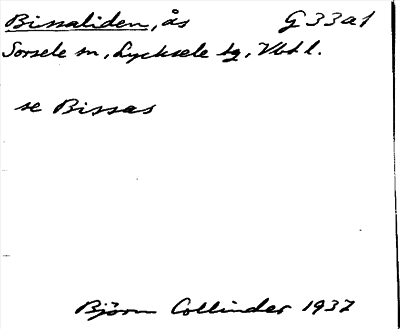 Bissaliden, ås G 33 a 1
Sorsele sn, Lycksele tg, Vbtl.
se Bissas
Björn Collinder 1937